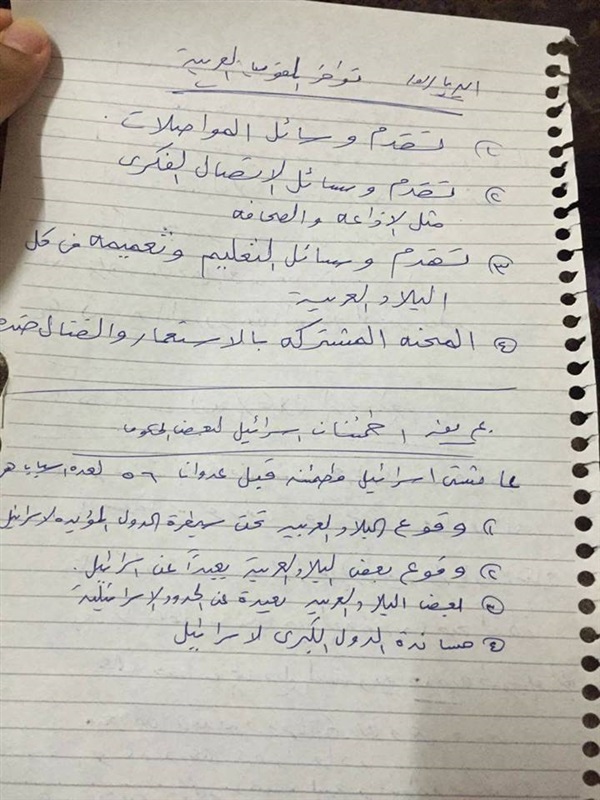 توافر المقومات العربية
١) تقدم وسائل المواصلات.
٢) تقدم وسائل الاتصال الفكرى
مثل الإذاعه والصحافه
٣) تقدم وسائل التعليم وتعميمه فى كل
البلاد العربية
٤) المحنه المشتركه بالاستعمار والقتال ضده
اطمئنان اسرائيل لبعض
اسرائيل مطمئنه قبل عدوان ٥٦ لعده اسباب
١) وقوع البلاد العربيه تحت سيطرة الدول المؤيده لاسرائيل
٢) وقوع بعض البلاد العربية بعيداً عن اسرائيل.
٣) بعض البلاد العربيه بعيدة عن الحدود الاسرائيلية
٤) مساندة الدول الكبرى لاسرائيل